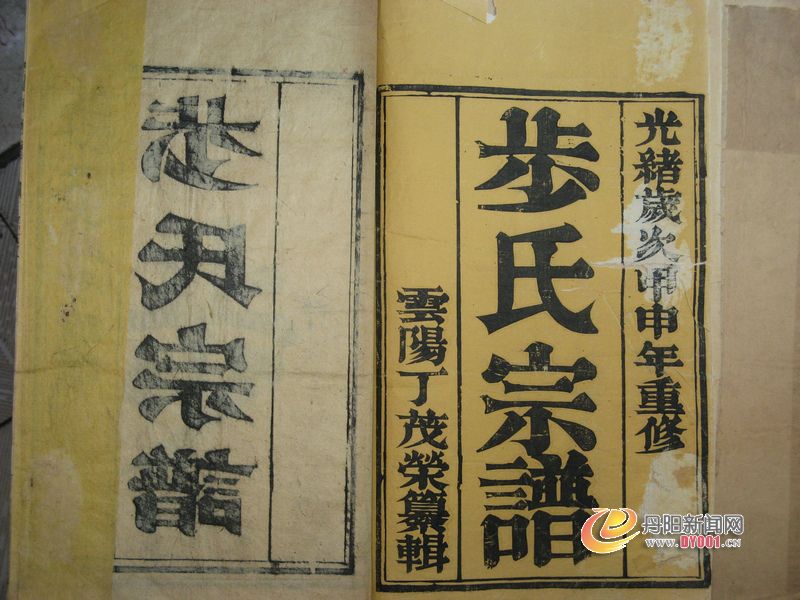 光緒歲次甲申年重修
步氏宗譜
雲陽丁茂榮纂輯
步氏宗譜
丹阳新闻网
www.DY001.cn